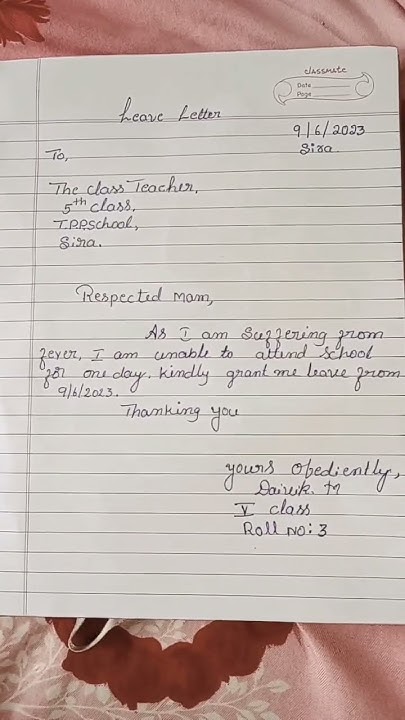 classmate
Date
Page
Leave Letter
9/6/2023
Sira
To,
The class Teacher,
5th class,
T.P.P.School,
Sira.
Respected mam,
As I am Suffering from
fever, I am unable to attend school
for one day. kindly grant me leave from
9/6/2023.
Thanking you
yours obediently,
Dairik.
V class
Roll No: 3